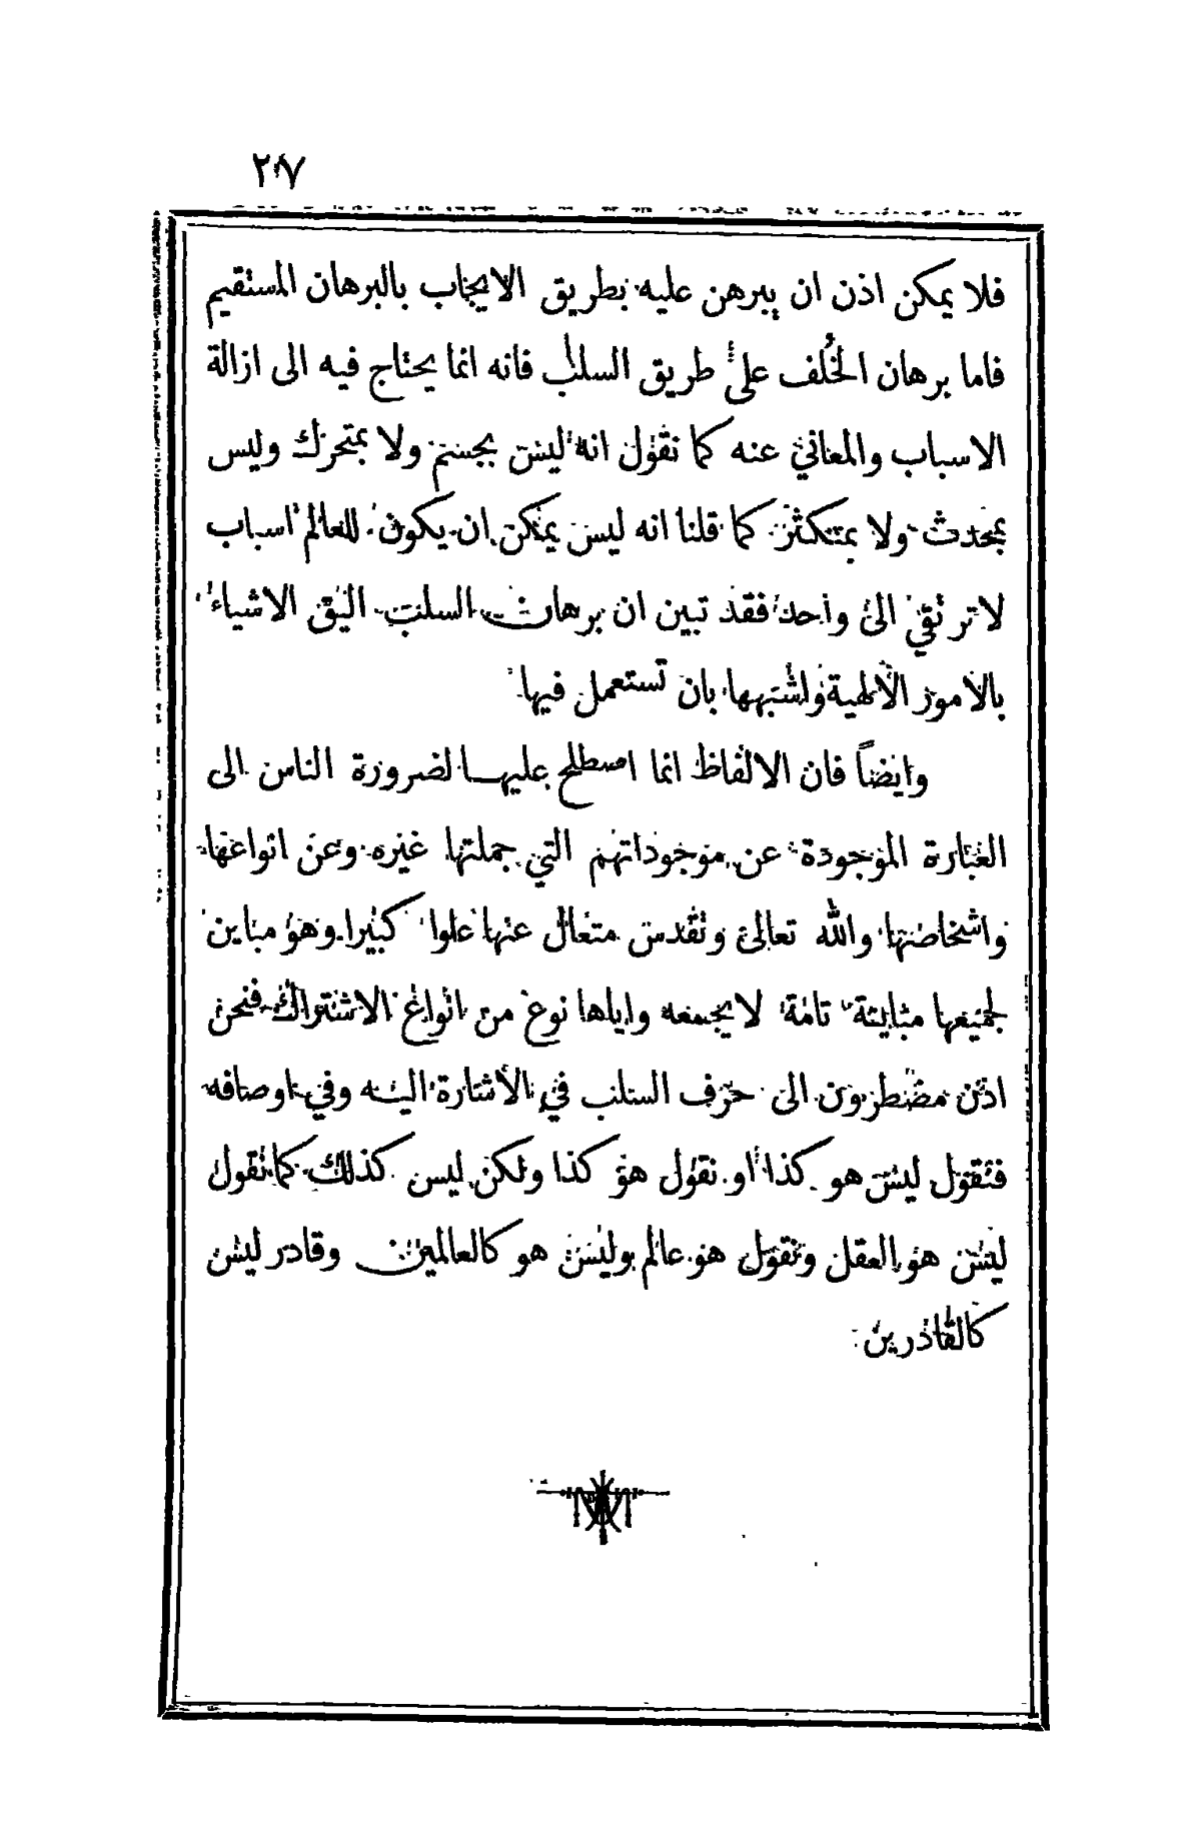 ٢٧
فلا يمكن اذن ان يبرهن عليه بطريق الايجاب بالبرهان المستقيم
فاما برهان الخُلف على طريق السلب فانه انما يحتاج فيه الى ازالة
الاسباب والمعاني عنه كما نقول انه ليس بجسم ولا بمتحرك وليس
بمحدث ولا بمتكثر كما قلنا انه ليس يمكن ان يكون للعالم اسباب
لا ترتقي الى واحد فقد تبين ان برهان السلب اليق الاشياء
بالامور الالهية واشبهها بان تستعمل فيها
وايضاً فان الالفاظ انما اصطلح عليها لضرورة الناس الى
العبارة الموجودة عن موجوداتهم التي جملتها غيره وعن انواعها
واشخاصها والله تعالى وتقدس متعال عنها علوا كبيرا وهو مباين
لجميعها مباينة تامة لا يجمعه واياها نوع من انواع الاشتراك فنحن
اذن مضطرون الى حرف السلب في الاشارة اليه وفي اوصافه
فنقول ليس هو كذا او نقول هو كذا ولكن ليس كذلك كما نقول
ليس هو العقل ونقول هو عالم وليس هو كالعالمين وقادر ليس
كالقادرين